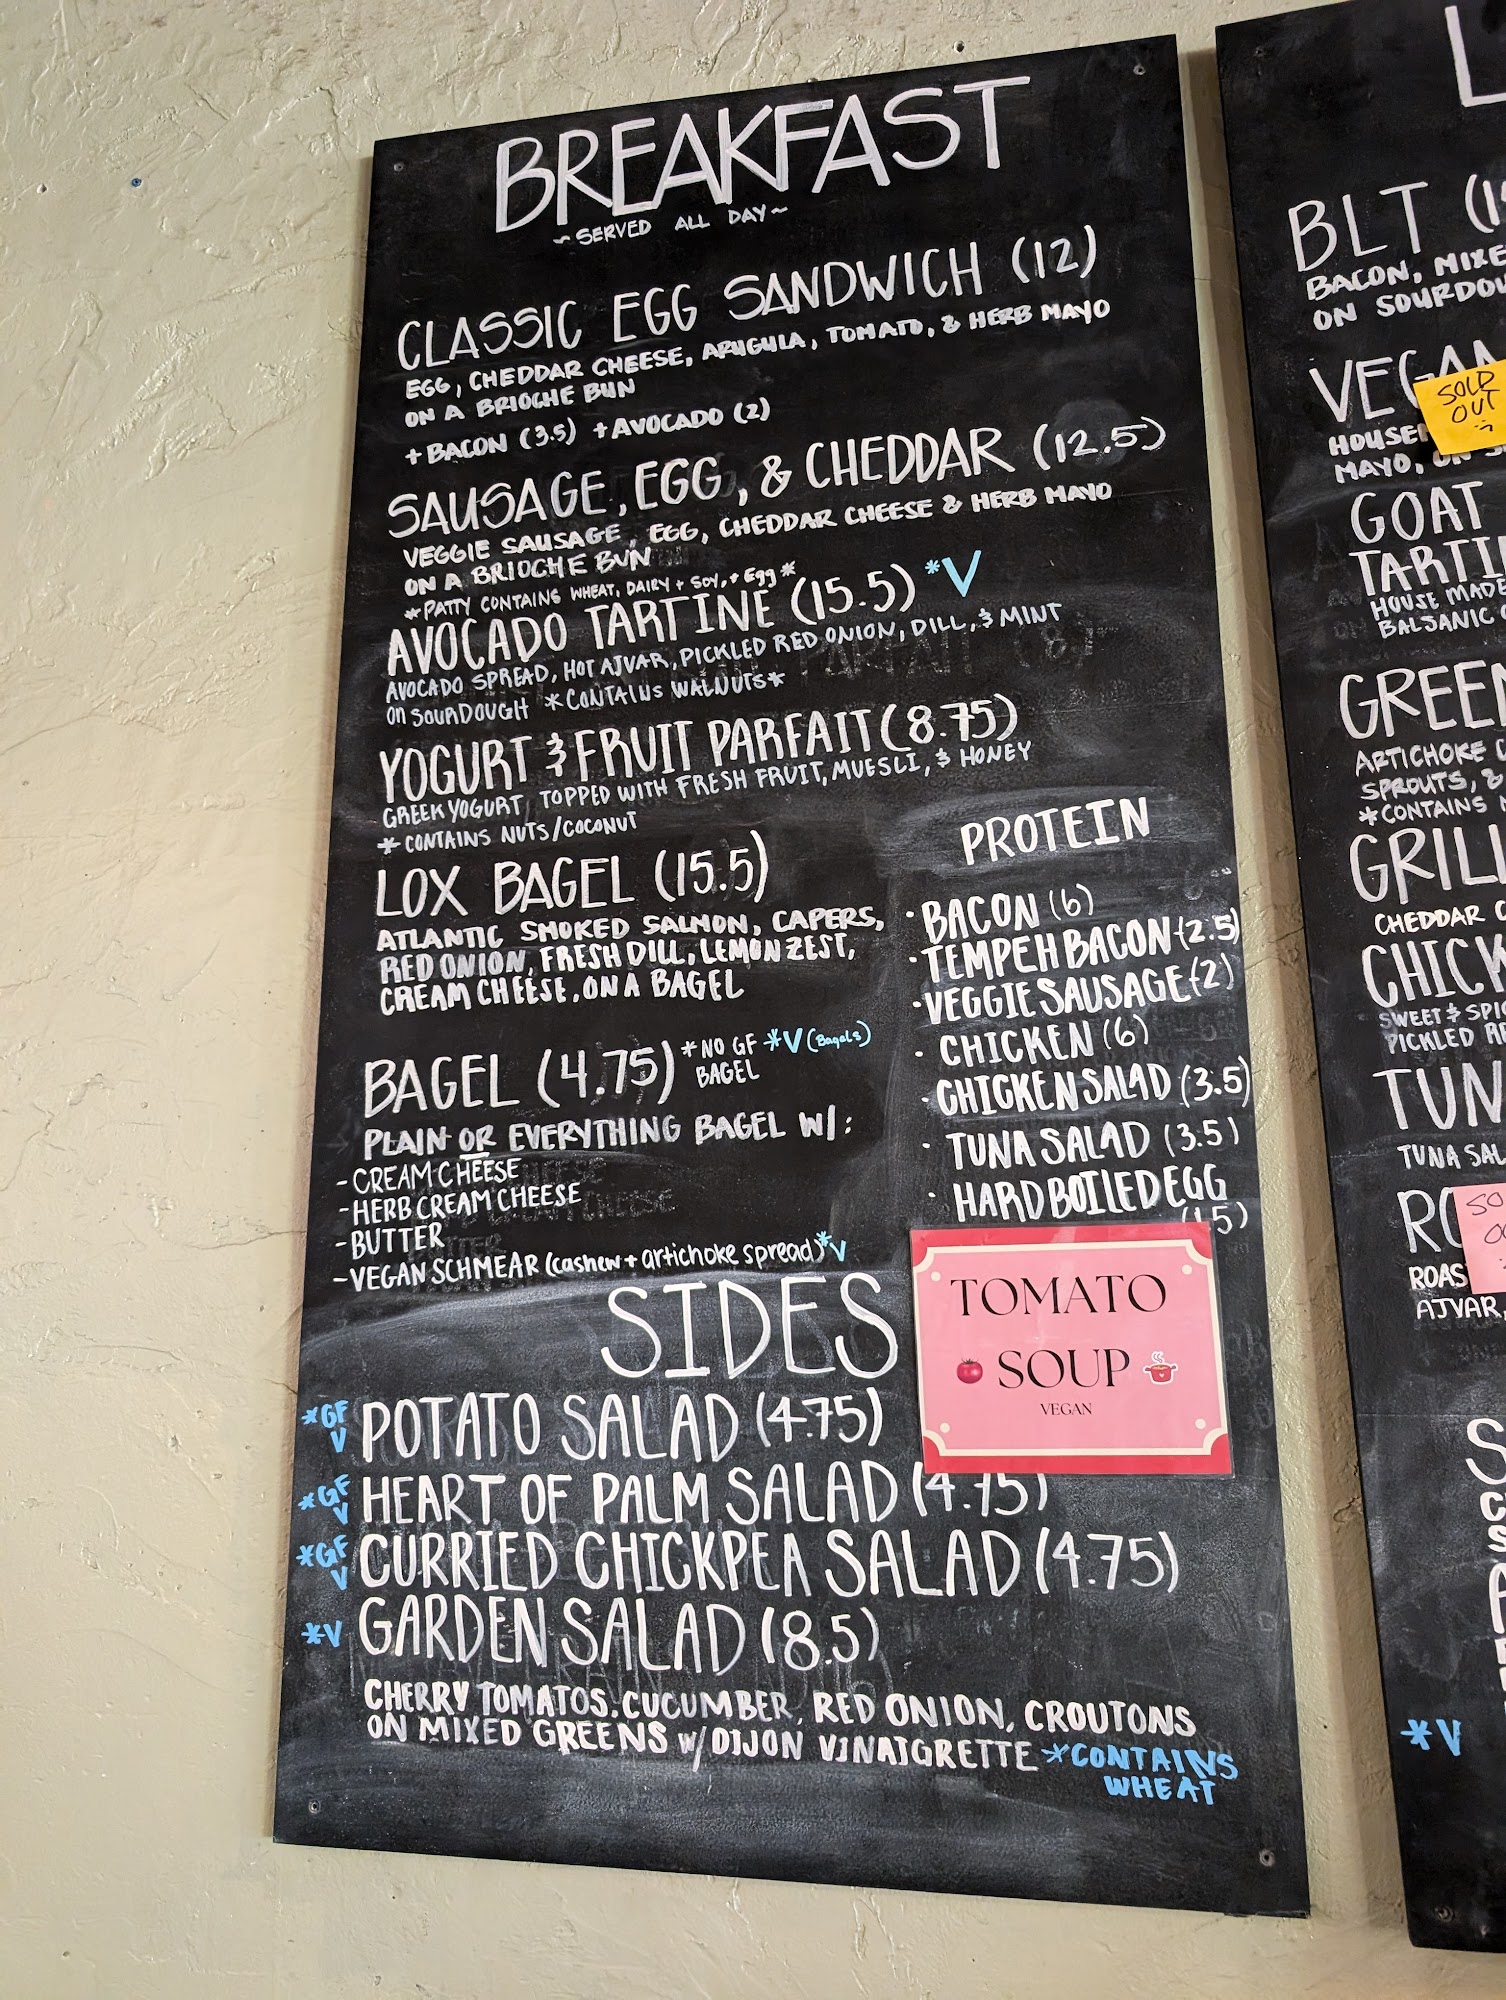 BREAKFAST
~ SERVED ALL DAY ~
CLASSIC EGG SANDWICH (12)
EGG, CHEDDAR CHEESE, ARUGULA, TOMATO, & HERB MAYO
ON A BRIOCHE BUN
+ BACON (3.5) + AVOCADO (2)
SAUSAGE, EGG, & CHEDDAR (12.5)
VEGGIE SAUSAGE, EGG, CHEDDAR CHEESE & HERB MAYO
ON A BRIOCHE BUN
*PATTY CONTAINS WHEAT, DAIRY + SOY, + Egg *
AVOCADO TARTINE (15.5) *V
AVOCADO SPREAD, HOT AJVAR, PICKLED RED ONION, DILL, & MINT
ON SOURDOUGH *CONTAINS WALNUTS*
YOGURT & FRUIT PARFAIT (8.75)
GREEK YOGURT TOPPED WITH FRESH FRUIT, MUESLI, & HONEY
* CONTAINS NUTS/COCONUT
LOX BAGEL (15.5)
ATLANTIC SMOKED SALMON, CAPERS,
RED ONION, FRESH DILL, LEMON ZEST,
CREAM CHEESE, ON A BAGEL
BAGEL (4.75) *NO GF *V (Bagels)
BAGEL
PLAIN OR EVERYTHING BAGEL W/:
- CREAM CHEESE
- HERB CREAM CHEESE
- BUTTER
- VEGAN SCHMEAR (cashew + artichoke spread) *V
PROTEIN
· BACON (6)
· TEMPEH BACON (2.5)
· VEGGIE SAUSAGE (2)
· CHICKEN (6)
· CHICKEN SALAD (3.5)
· TUNA SALAD (3.5)
· HARD BOILED EGG
(1.5)
TOMATO
SOUP
VEGAN
SIDES
*GF V POTATO SALAD (4.75)
*GF V HEART OF PALM SALAD (4.75)
*GF V CURRIED CHICKPEA SALAD (4.75)
*V GARDEN SALAD (8.5)
CHERRY TOMATOS. CUCUMBER, RED ONION, CROUTONS
ON MIXED GREENS w/ DIJON VINAIGRETTE *CONTAINS
WHEAT
L
BLT
BACON, MIXE
ON SOURDOU
VEGAN
SOLD
OUT
MAYO,
GOAT
TARTI
HOUSE MADE
BALSANIC
GREEN
ARTICHOKE
SPROUTS, &
*CONTAINS
GRILL
CHEDDAR
CHICK
SWEET & SPIC
PICKLED RE
TUN
TUNA SAL
RO
ROAS
AJVAR,
S
*V